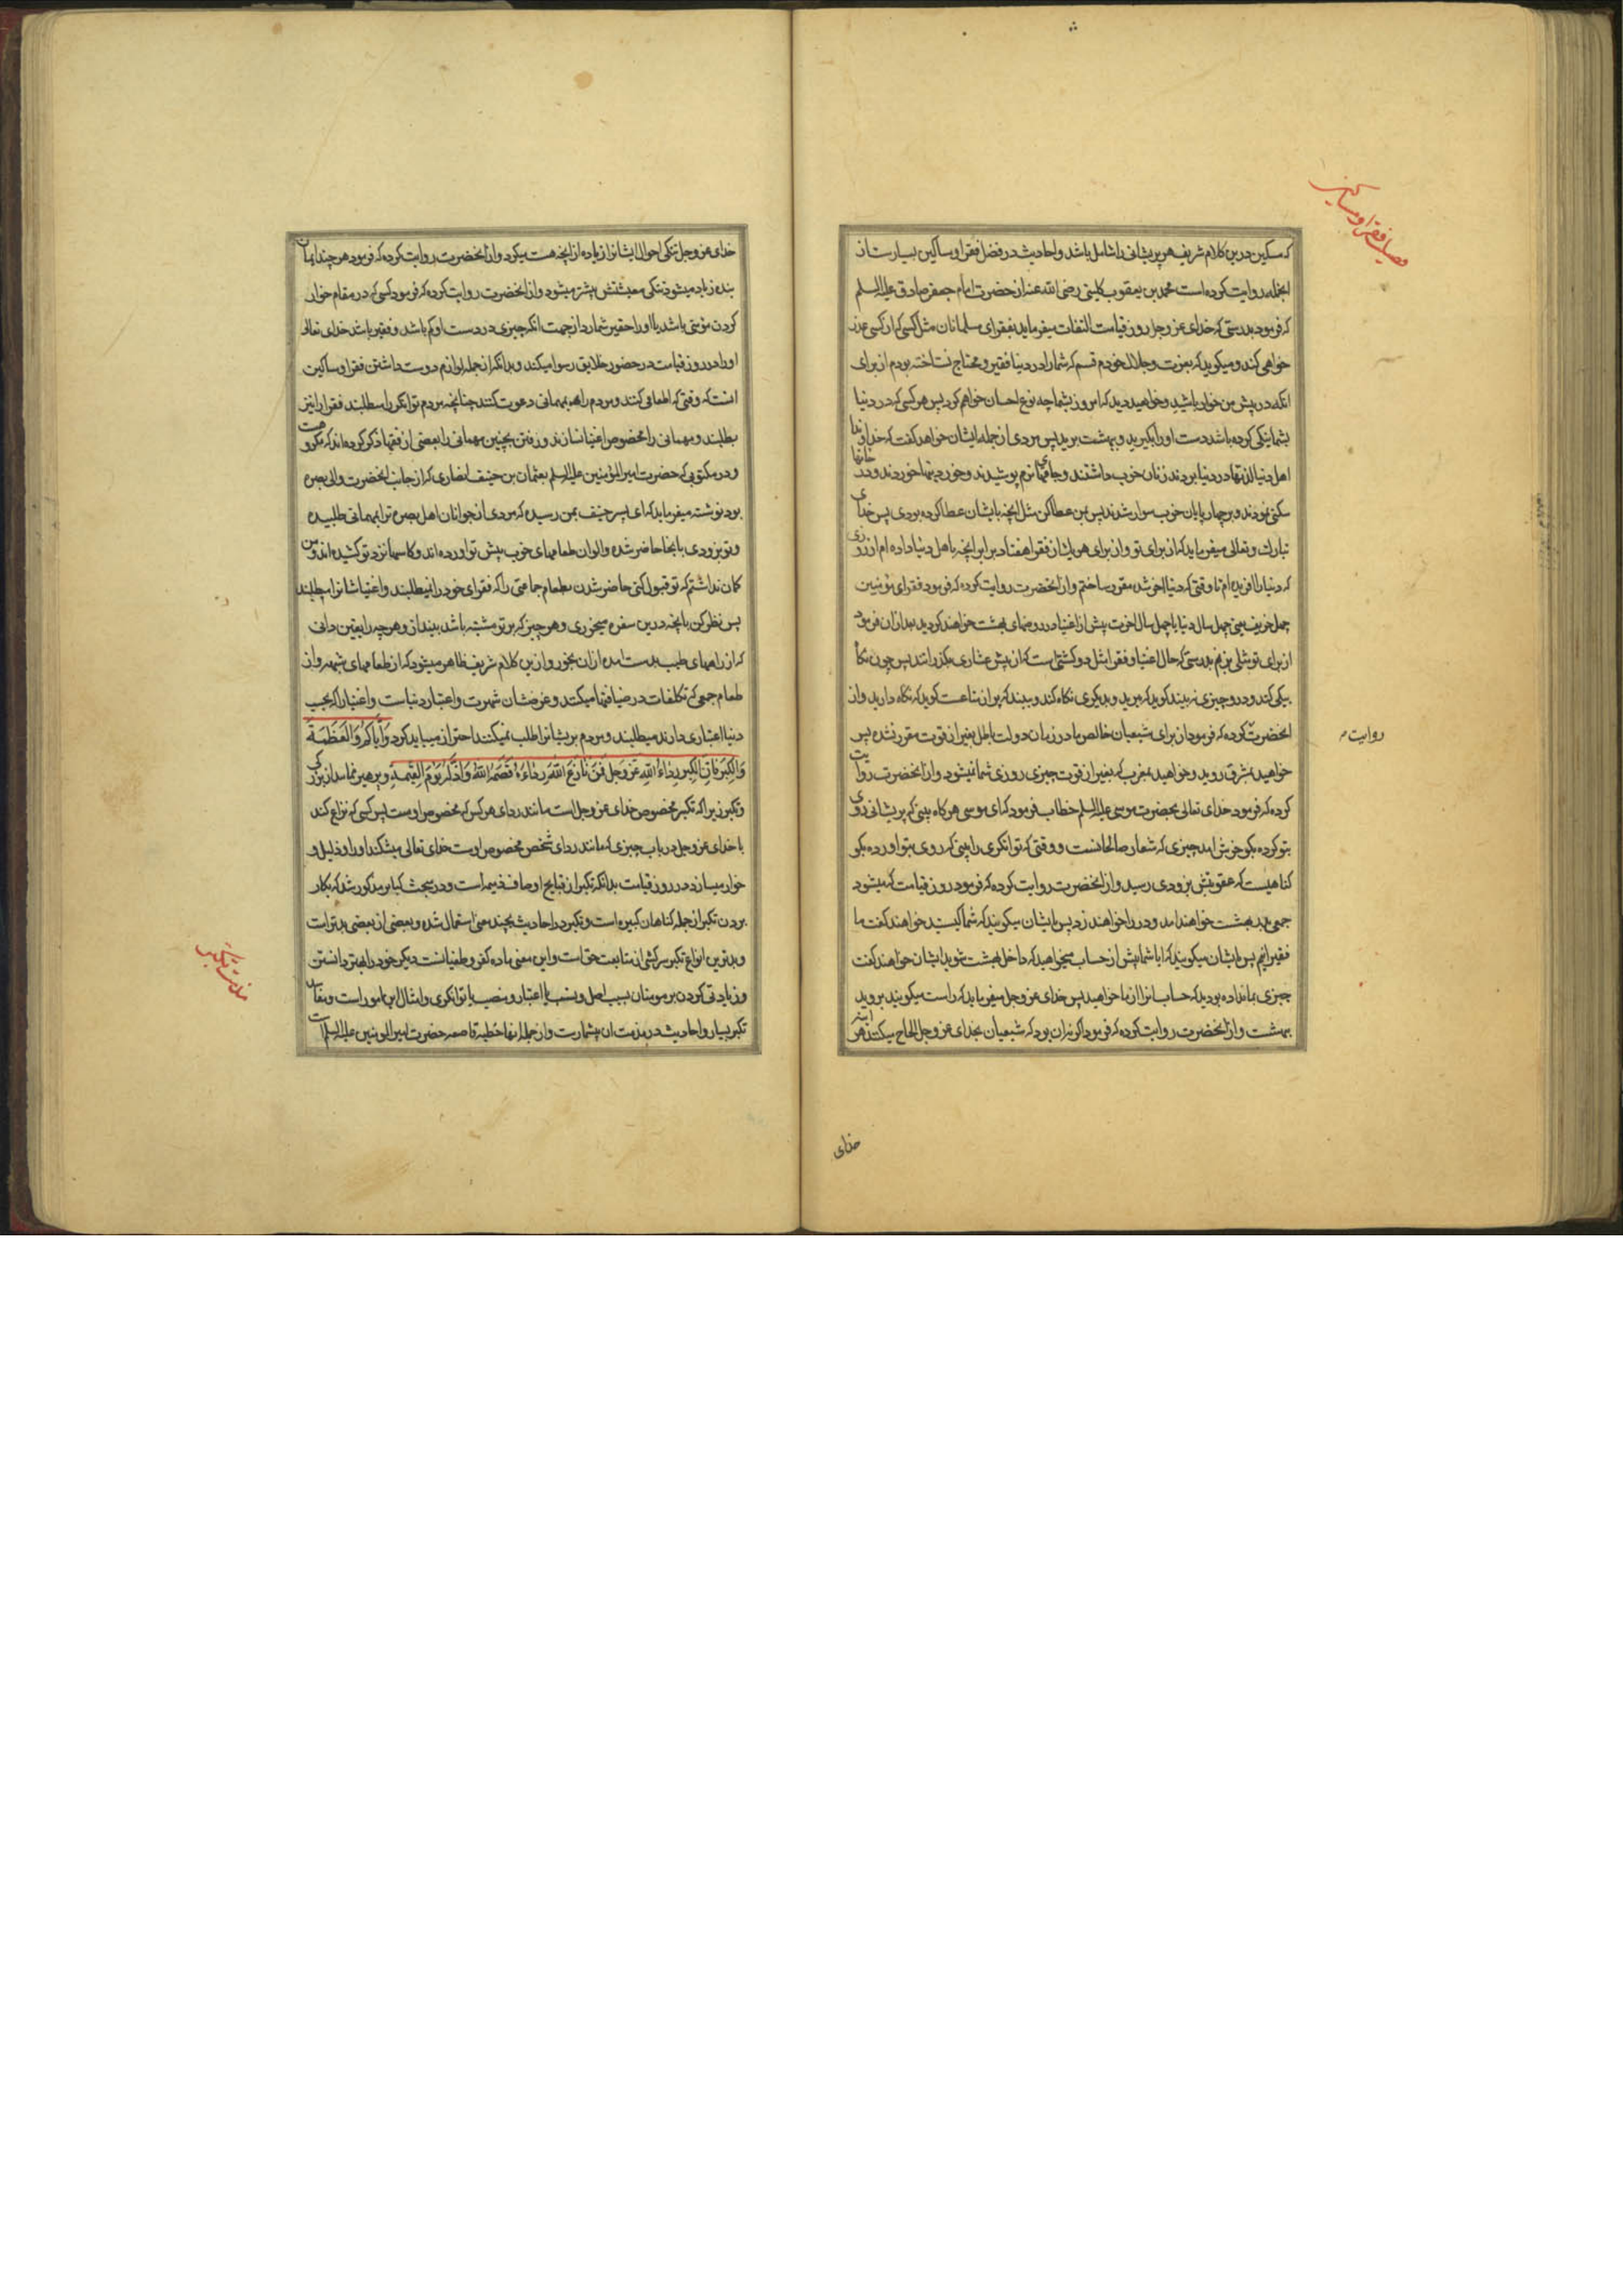 فضیلت فقرا و مساکین
که مسکین درین کلام شریف هر پریشانی را شامل باشد و احادیث در فضل فقرا و مساکین بسیارست از
انجمله روایت کرده است محمد بن یعقوب کلینی رضی الله عنه از حضرت امام جعفر صادق علیه السلم
که فرمود بدرستی که خدای عز و جل روز قیامت التفات میفرماید بفقرای مسلمانان مثل کسی که از کسی عذر
خواهی کند و میکوید که بعزت و جلال خودم قسم که شما را در دنیا فقیر و محتاج نساخته بودم از برای
انکه در پیش من خوار باشید و خواهید دید که امروز بشما چه نوع احسان خواهم کرد پس هر کسی که در دنیا
بشما نیکی کرده باشد دست او را بکیرید و ببهشت برید پس مردی از جمله ایشان خواهد کفت که خداوندا
اهل دنیا لذتها در دنیا بردند زنان خوب داشتند و جامهای نرم پوشیدند و خوردنیها خوردند و در خانها
سکنی نمودند و بر چهارپایان خوب سوار شدند پس بمن عطا کن مثل انچه بایشان عطا کرده بودی پس خدای
تبارک و تعالی میفرماید که از برای تو و از برای هر یک از فقرا هفتاد برابر انچه باهل دنیا داده ام از روزی
که دنیا را افریده ام تا وقتی که دنیا اخر شده مقرر ساختم و از انحضرت روایت کرده که فرمود فقرای مؤمنین
چهل خریف یعنی چهل سال دنیا یا چهل سال اخرت پیش از اغنیا در روضهای بهشت خواهند کردید بعد ازان فرمود
از برای تو مثلی بزنم بدرستی که حال اغنیا و فقرا مثل دو کشتی است که از پیش عشاری بکذرانند پس چون نکاه
بیکی کند و درو چیزی نه بیند کوید که ببرید و بدیکری نکاه کند و ببیند که پر از متاعست کوید که نکاه دارید و از
انحضرت کرده که فرمود از برای شیعیان خالص ما در زمان دولت باطل بغیر از قوت مقرر نشده پس
روایت
خواهید بمشرق روید و خواهید بمغرب که بغیر از قوت چیزی روزی شما نمیشود و از انحضرت روایت
کرده که فرمود خدای تعالی بحضرت موسی علیه السلم خطاب فرمود که ای موسی هر کاه بینی که پریشانی روی
بتو کرده بکو خوش امد چیزی که شعار صالحانست و وقتی که توانکری را بینی که روی بتو اورده بکو
کناهیست که عقوبتش بزودی رسید و از انحضرت روایت کرده که فرمود روز قیامت که میشود
جمعی بدر بهشت خواهند امد و در را خواهند زد پس بایشان میکویند که شما کیستید خواهند کفت ما
فقیرانیم پس بایشان میکویند که ایا شما پیش از حساب میخواهید که داخل بهشت شوید ایشان خواهند کفت
چیزی بما نداده بودید که حساب انرا از ما خواهید پس خدای عز و جل میفرماید که راست میکویند بروید
ببهشت و از انحضرت روایت کرده که فرمود اکر نه ان بود که شیعیان بخدای عز و جل الحاح میکنند هر اینه
خدای
خدای عز و جل تنکی احوال ایشانرا زیاده از انچه هست میکرد و از انحضرت روایت کرده که فرمود هر چند ایمان
بنده زیاد میشود تنکی معیشتش بیشتر میشود و از انحضرت روایت کرده که فرمود کسی که در مقام خوار
کردن مؤمنی باشد یا او را حقیر شمارد از جهت انکه چیزی در دست او کم باشد و فقیر باشد خدای تعالی
او را در روز قیامت در حضور خلایق رسوا میکند و بدانکه از جمله لوازم دوست داشتن فقرا و مساکین
انست که وقتی که اطعامی کنند و مردم را بمهمانی دعوت کنند چنانچه مردم توانکر را میطلبند فقرا را نیز
بطلبند و مهمانی را مخصوص اغنیا نسازند و رفتن بچنین مهمانی را بعضی از فقها ذکر کرده اند که مکروهست
و در مکتوبی که حضرت امیر المؤمنین علیه السلم بعثمان بن حنیف انصاری که از جانب انحضرت والی بصره
بود نوشته میفرماید که ای پسر حنیف بمن رسیده که مردی از جوانان اهل بصره ترا بمهمانی طلبیده
و تو بزودی بانجا حاضر شده و الوان طعامهای خوب پیش تو اورده اند و کاسها نزد تو کشیده اند و من
کمان نداشتم که تو قبول کنی حاضر شدن بطعام جماعتی را که فقرای خود را نمیطلبند و اغنیاشانرا میطلبند
پس نظر کن بانچه درین سفره میخوری و هر چیز که بر تو مشتبه باشد بینداز و هر چه را یقین دانی
که از راههای طیب بدست امده ازان بخور و ازین کلام شریف ظاهر میشود که از طعامهای شبهه و از
طعام جمعی که تکلفات در ضیافتها میکنند و غرضشان شهرت و اعتبار دنیاست و اغنیا را که بحسب
دنیا اعتباری دارند میطلبند و مردم پریشانرا طلب نمیکنند احتراز میباید کرد وَاِیّاکُم وَالعَظَمَةَ
وَالکِبرَ فَاِنَّ الکِبرَ رِداءُ اللهِ عَزَّ وَجَلَّ فَمَن نازَعَ اللهَ رِداءَهُ قَصَمَهُ اللهُ وَاَذَلَّهُ یَومَ القِیمَةِ و پرهیز نمایید از بزرکی
و تکبر زیرا که تکبر مخصوص خدای عز و جل است مانند ردای هر کس که مخصوص اوست پس کسی که نزاع کند
با خدای عز و جل در باب چیزی که مانند ردای شخص مخصوص اوست خدای تعالی میشکند او را و ذلیل و
خوار میسازد در روز قیامت بدانکه تکبر از قبایح اوصاف ذمیمه است و در مبحث کبایر مذکور شد که بکار
بردن تکبر از جمله کناهان کبیره است و تکبر در احادیث بچند معنی استعمال شده و بعضی از بعضی بدترست
و بدترین انواع تکبر سرکشی از متابعت حق است و این معنی ماده کفر و طغیانست دیکر خود را بهتر دانستن
و زیادتی کردن بر مومنان بسبب اصل و نسب یا اعتبار و منصب یا توانکری و امثال این امور است و مفاسد
تکبر بسیار و احادیث در مذمت ان بیشمارست و از جمله انها خطبه قاصعه حضرت امیر المومنین علیه السلم است
مذمت تکبر